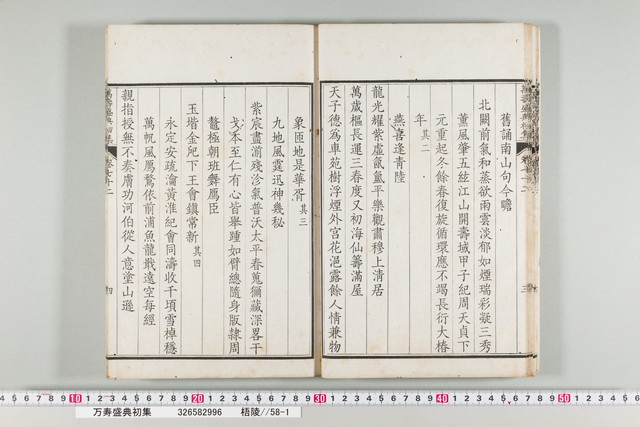 舊誦南山句今瞻
北闕前氣和蒸欲雨雲淡郁如煙瑞彩凝三秀
薰風肇五絃江山開壽域甲子紀周天貞下
元重起冬餘春復旋循環應不竭長衍大椿
年 其二
燕喜逢青陸
龍光耀紫虛氤氳平樂觀肅穆上清居
萬歲樞長運三春度又初海仙籌滿屋
天子德為車苑樹浮煙外宮花浥露餘人情兼物
象匝地是華胥 其三
九地風霆迅神幾秘
紫宸盡消殘沴氣普沃太平春蒐獮藏深畧干
戈本至仁有心皆舉踵如臂總隨身版隷周
鼇極朝班舞鴈臣
玉堦俞咫下王會鎮常新 其四
永定安疏瀹黃淮紀會同濤收千頃雪棹穩
萬帆風鴈鶩依前浦魚龍戢遠空每經
親指授無不奏膚功河伯從人意塗山遜
萬壽盛典初集 卷七十二 四
萬壽盛典初集
10 20 30 40 50
万寿盛典初集 326582996 梧陵//58-1